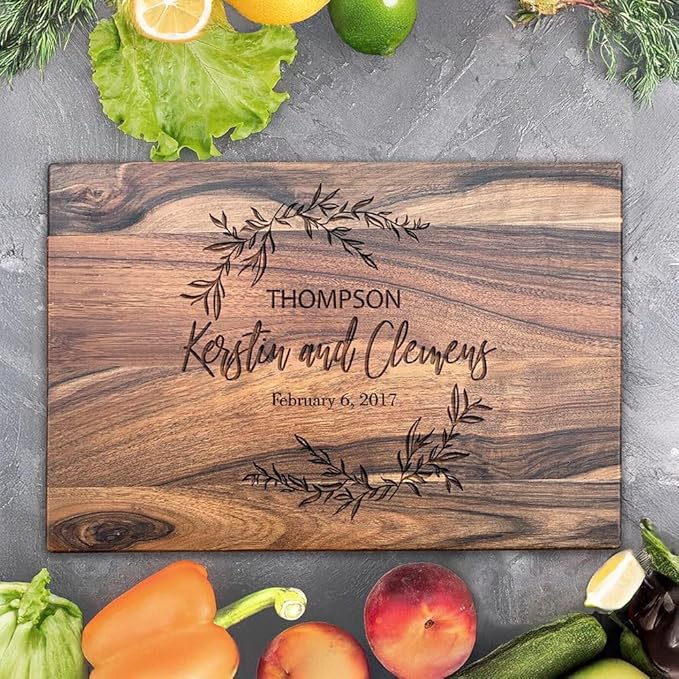 THOMPSON
Kerstin and Clemens
February 6, 2017